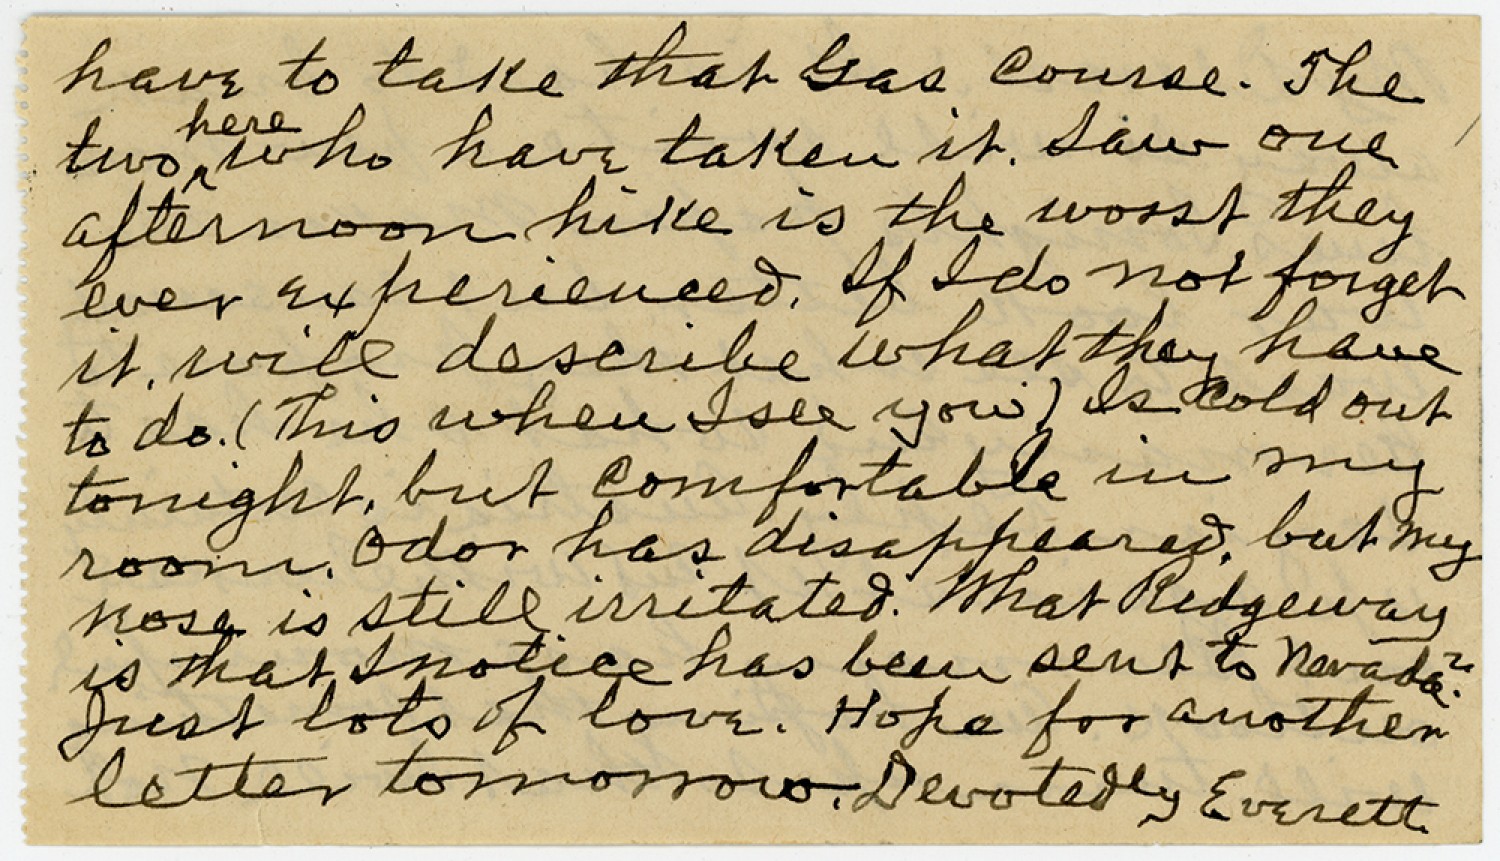 have to take that Gas Course. The
two here who have taken it. Saw one
afternoon hike is the worst they
ever experienced. If I do not forget
it, will describe what they have
to do. (This when I see you) Is cold out
tonight, but comfortable in my
room. Odor has disappeared, but my
nose is still irritated. What Ridgeway
is that I notice has been sent to Nevada?
Just lots of love. Hope for another
letter tomorrow. Devotedly Everett.